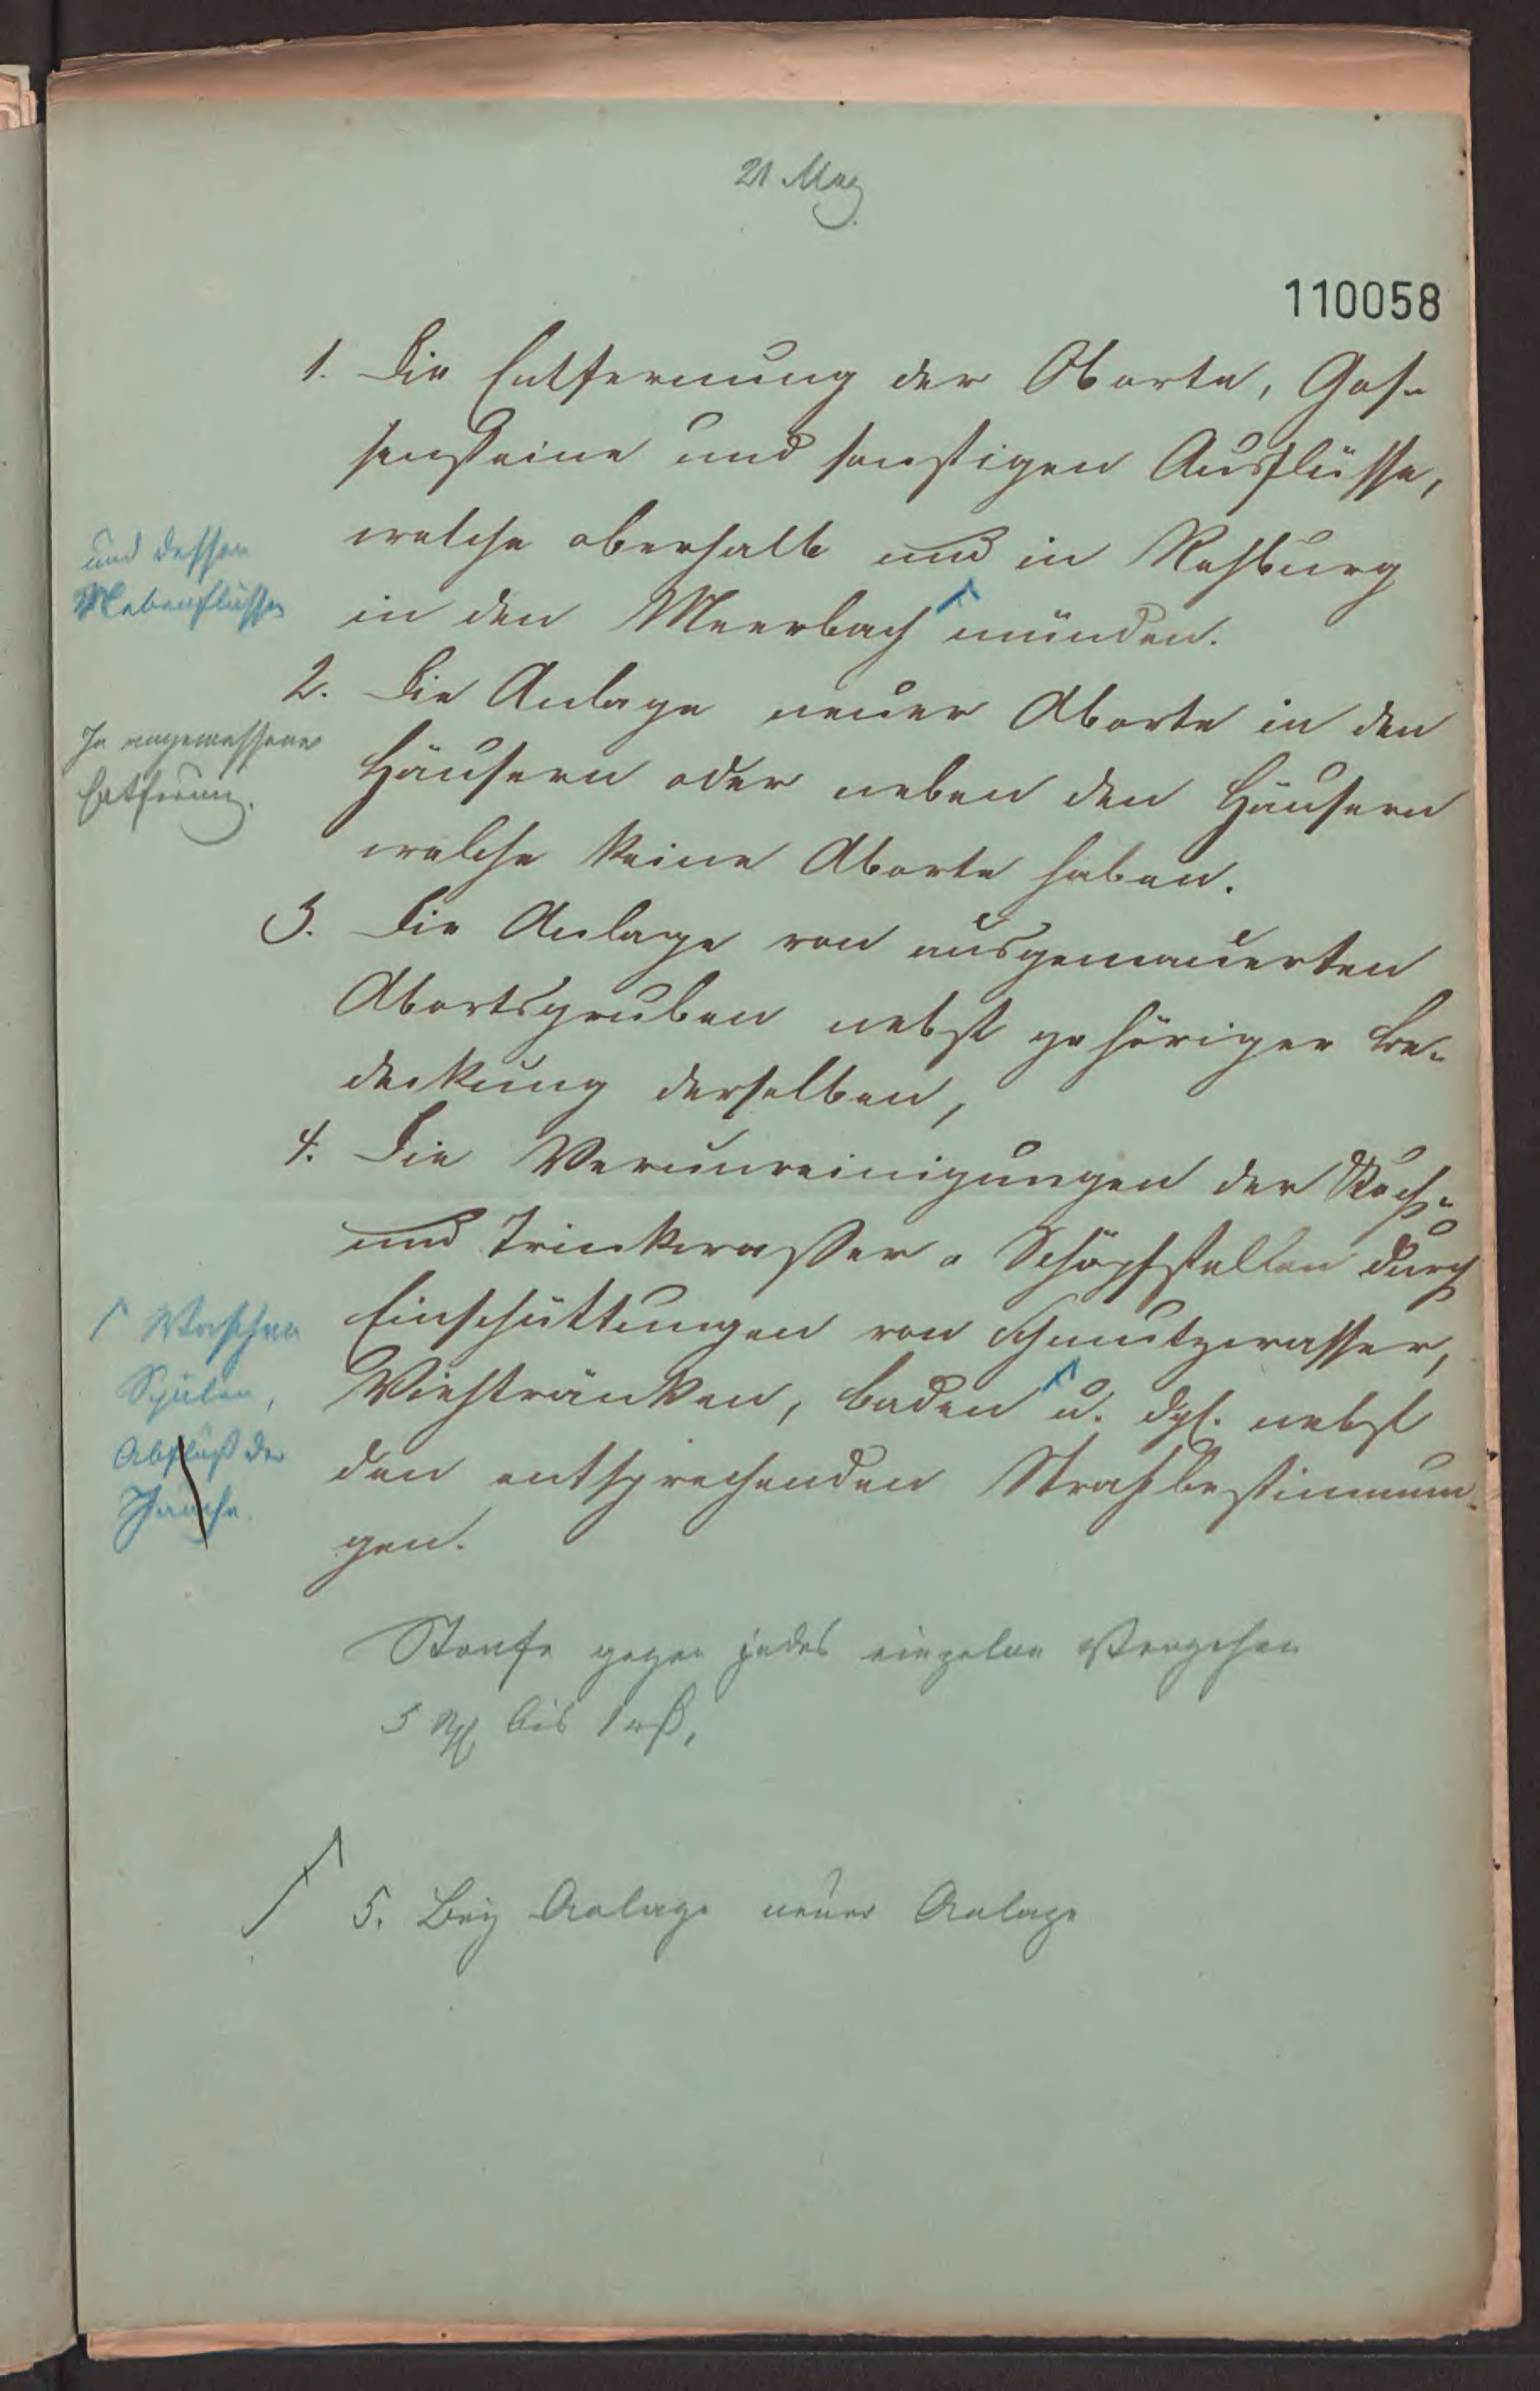 21 May
110058
1. Die Entfernung der Aborte, Gos-
sensteine und sonstigen Ausflüsse,
welche oberhalb und in Rehburg
in den Meerbach münden.
und dessen
Nebenflüsse
2. Die Anlage neuer Aborte in den
Häusern oder neben den Häusern
welche keine Aborte haben.
In angemessener
Entfernung.
3. Die Anlage von ausgemauerten
Abortsgruben nebst gehöriger Be-
deckung derselben,
4. Die Verunreinigungen der Koch-
und Trinkwasser-Schöpfstellen durch
Einschüttungen von Schmutzwasser,
Viehtränken, Baden u. dgl. nebst
den entsprechenden Strafbestimmun-
gen.
Waschen
Spülen,
Abfluß der
Jauche.
Strafe gegen jedes einzelne Vergehen
5 bis 1
5. Bey Anlage neuer Anlage